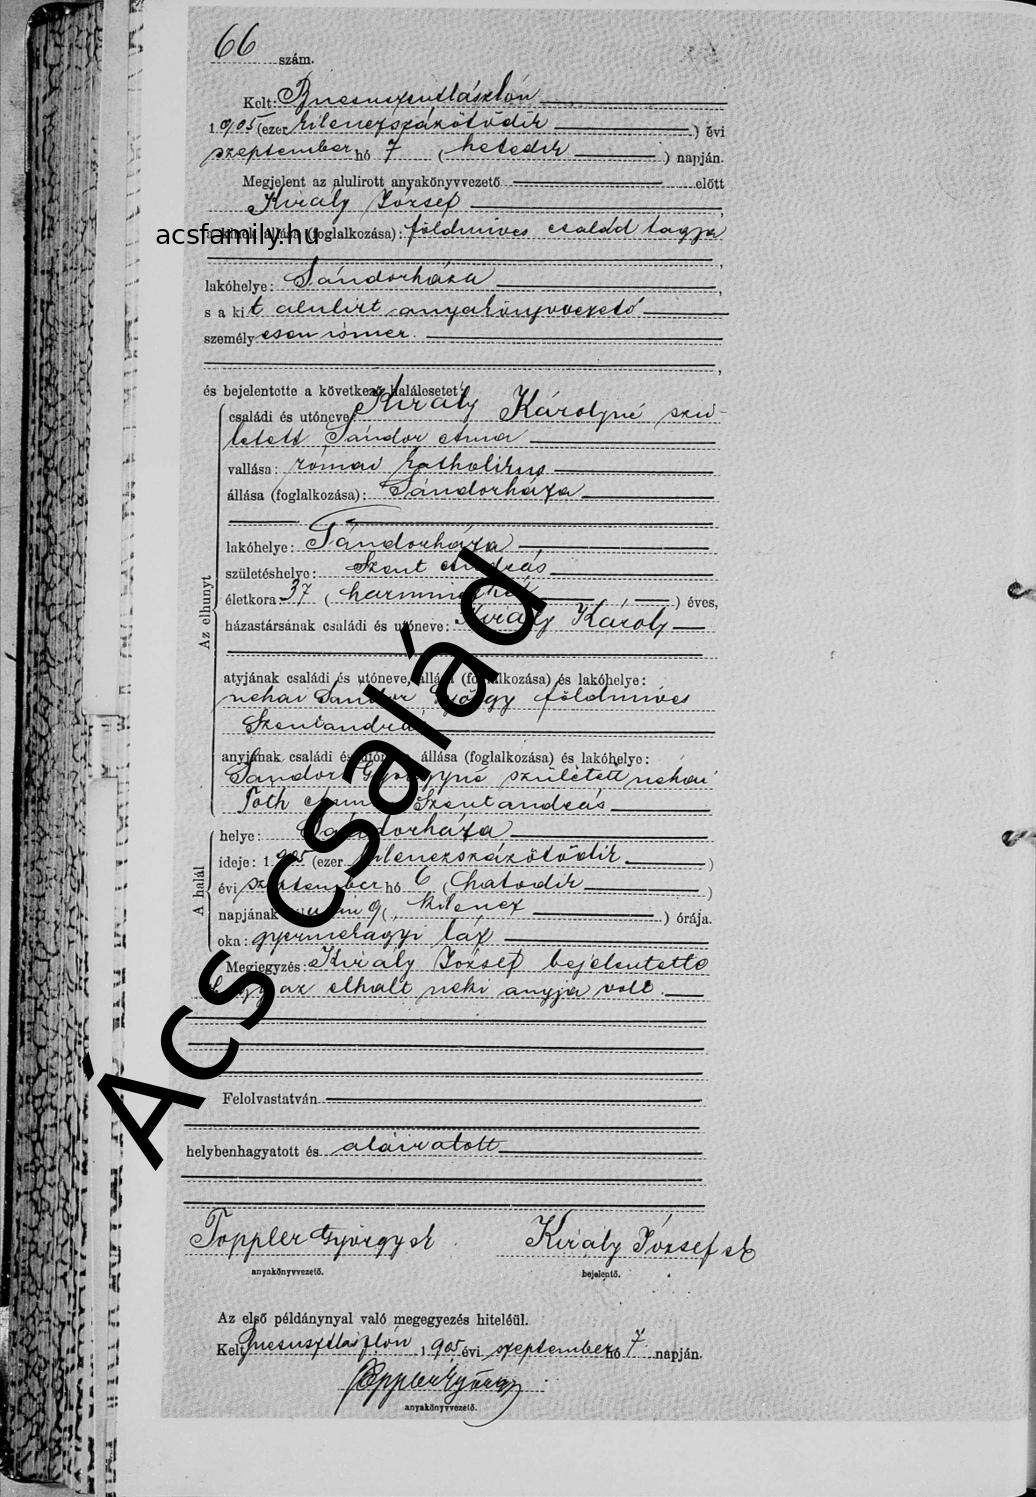 66 szám.
Kelt: Bucsuszentlászlón
1905 (ezer kilenczszázötödik) évi
szeptember hó 7 (hetedik) napján.
Megjelent az alulirott anyakönyvvezető előtt
Király József,
a kinek állása (foglalkozása): földmives család tagja
acsfamily.hu
lakóhelye: Sándorháza,
s a kit alulirt anyakönyvvezető
személyesen ismer.
és bejelentette a következő halálesetet:
családi és utóneve: Király Károlyné szü-
letett Sándor Anna
vallása: római katholikus
állása (foglalkozása): Sándorháza
Az elhunyt
lakóhelye: Sándorháza
születéshelye: Szent András
életkora 37 (harminczhét) éves,
házastársának családi és utóneve: Király Károly
atyjának családi és utóneve, állása (foglalkozása) és lakóhelye:
néhai Sándor György földmives
Szentandrás
anyjának családi és utóneve, állása (foglalkozása) és lakóhelye:
Sándor Györgyné született néhai
Tóth Anna Szentandrás
A halál
helye: Sándorháza
ideje: 1905 (ezer kilenczszázötödik)
évi szeptember hó 6 (hatodik)
napjának 9 (kilencz) órája.
oka: gyermekágyi láz
Megjegyzés: Király József bejelentette
hogy az elhalt neki anyja volt.
Ács család
Felolvastatván
helybenhagyatott és aláiratott
Toppler György sk Király József sk
anyakönyvvezető. bejelentő.
Az első példánynyal való megegyezés hiteléül.
Kelt Bucsusztlászlón 1905 évi szeptember hó 7 napján.
Toppler György
anyakönyvvezető.